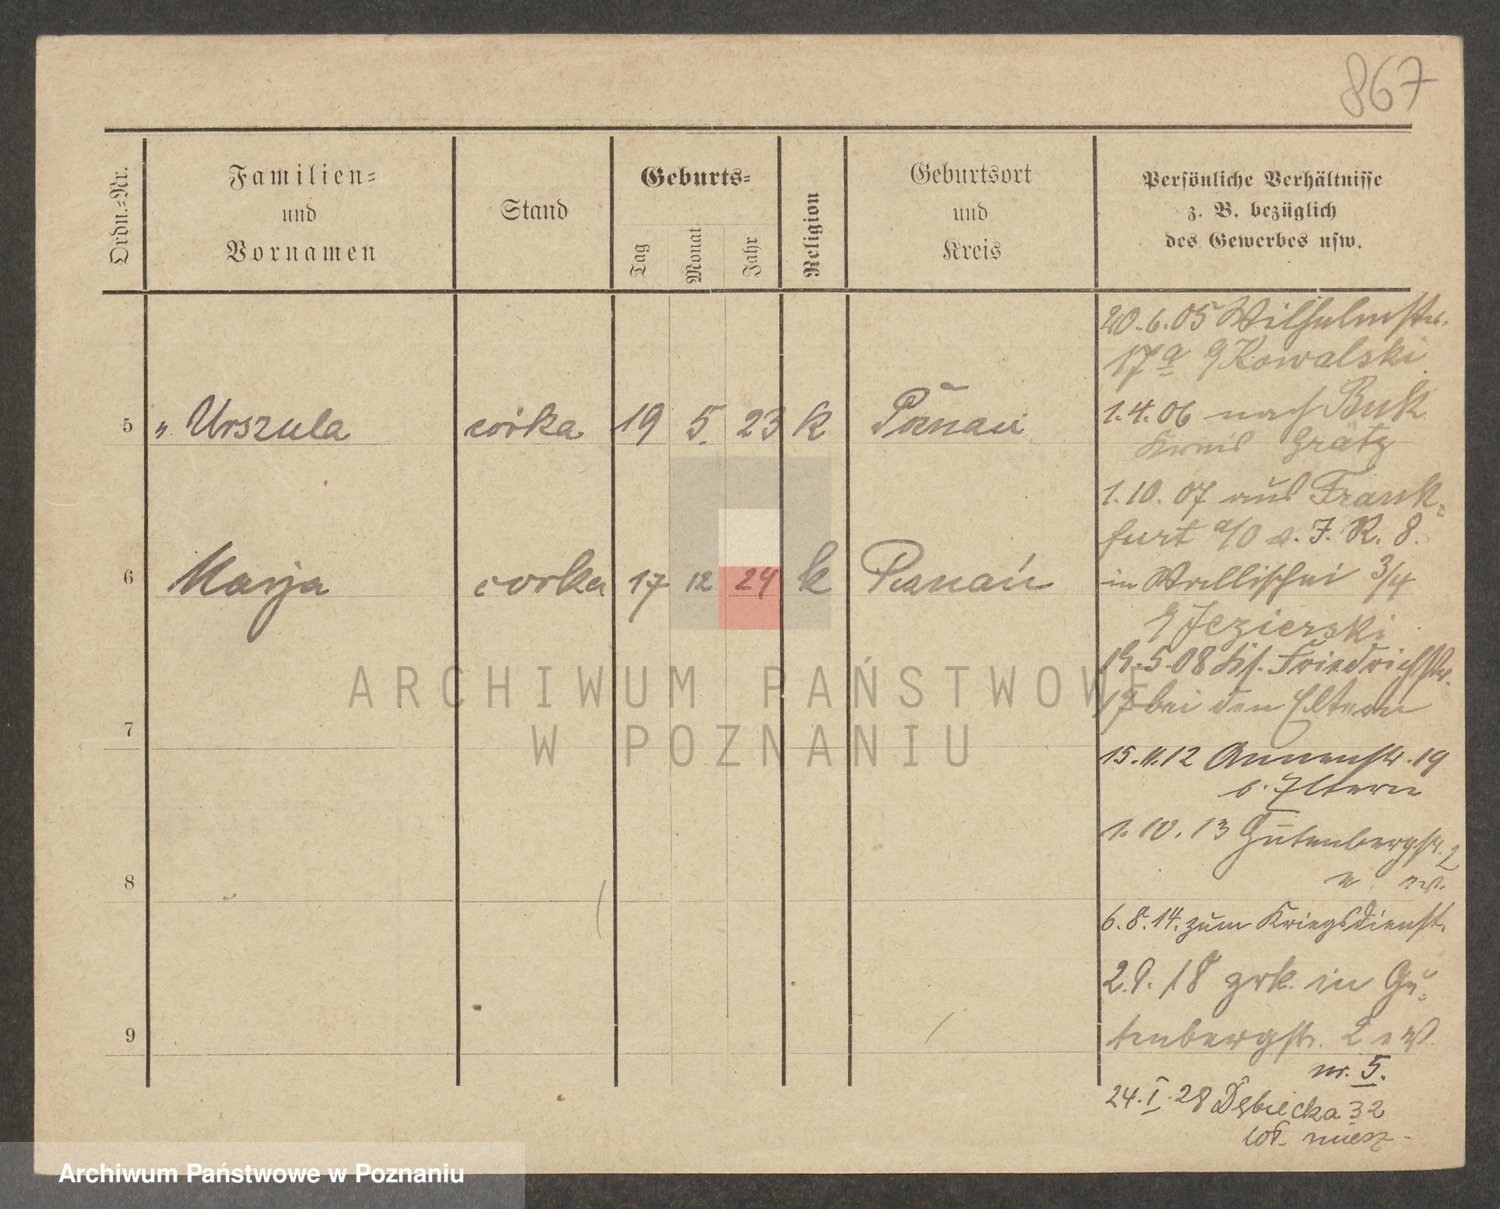 867
Ordn.-Nr.
Familien-
und
Vornamen
Stand
Geburts-
Tag
Monat
Jahr
Religion
Geburtsort
und
Kreis
Persönliche Verhältnisse
z. B. bezüglich
des Gewerbes usw.
20.6.05 Wilhelmstr.
17a Kowalski
5 " Urszula córka 19 5. 23 k Poznań
1.4.06 nach Buk
Kreis Grätz
1.10.07 aus Frank-
furt a/O J. R. 8.
6 Marja corka 17 12 24 k Poznań
in 3/4
Jezierski
19.5.08 Friedrichstr.
17 bei den Eltern
7
15.11.12 Annenstr. 19
b. Eltern
1.10.13 Gutenbergstr. 2
8
6.8.14. zum Kriegsdienst.
2.9.18 zrk. in Gu-
tenbergstr. 2
9
nr. 5.
24.I.28 Dębiecka 32
miesz.
ARCHIWUM PAŃSTWOWE
W POZNANIU
Archiwum Państwowe w Poznaniu